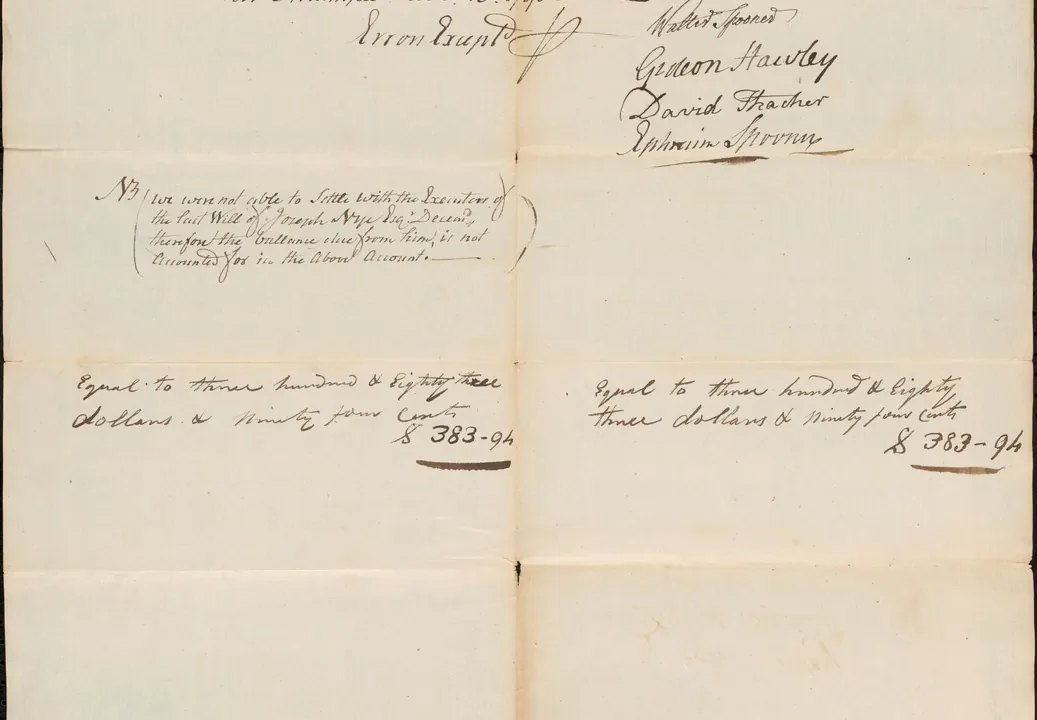 Errors Excepted
Walter Spooner
Gideon Hawley
David Thacher
Ephraim Spooner
NB (we were not able to Settle with the Executors of
the last Will of Joseph Nye Esqr. Deceasd,
therefore the ballance due from him, is not
Accounted for in the Above Account.)
Equal to three hundred & Eighty three
dollars & Ninety four Cents
$ 383-94
Equal to three hundred & Eighty
three dollars & Ninety four Cents
$ 383-94